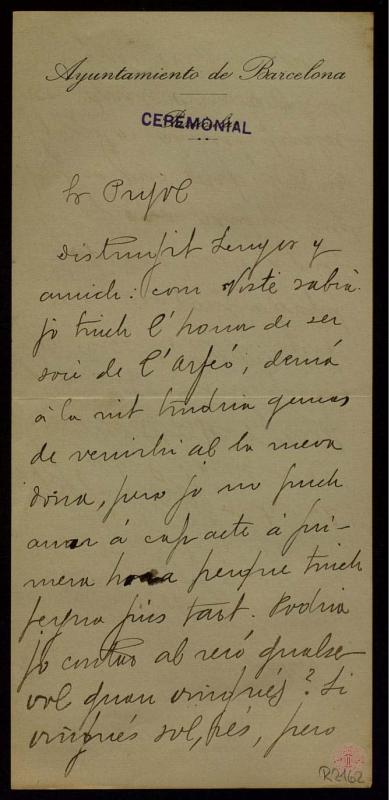 Ayuntamiento de Barcelona
CEREMONIAL
Sr Pujol
Distingit Senyor y
amich: com Vosté sabrá
jo tinch l'honor de ser
soci de l'Orfeó; demá
á la nit tindria ganas
de venirhi ab la meva
dona, pero jo no puch
anar á cap acte á pri-
mera hora perque tinch
feyna fins tart. Podria
jo contar ab recó qualse-
vol quan vingués? Si
vingués sol, rés, pero
R2162